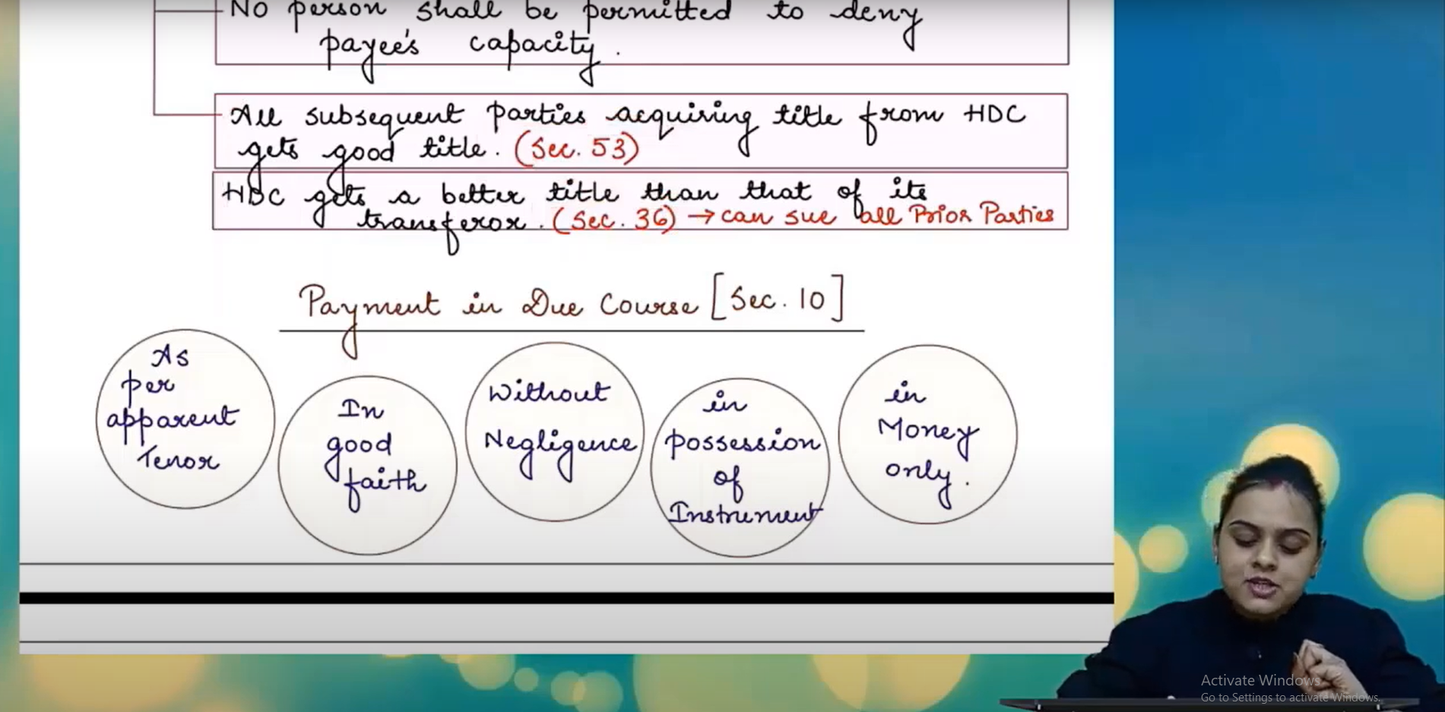 No person shall be permitted to deny
payee's capacity.
All subsequent parties acquiring title from HDC
gets good title. (Sec. 53)
HDC gets a better title than that of its
transferor. (Sec. 36) → can sue all Prior Parties
Payment in Due Course [Sec. 10]
As
per
apparent
Tenor
In
good
faith
Without
Negligence
in
possession
of
Instrument
in
Money
only.
Activate Windows
Go to Settings to activate Windows.